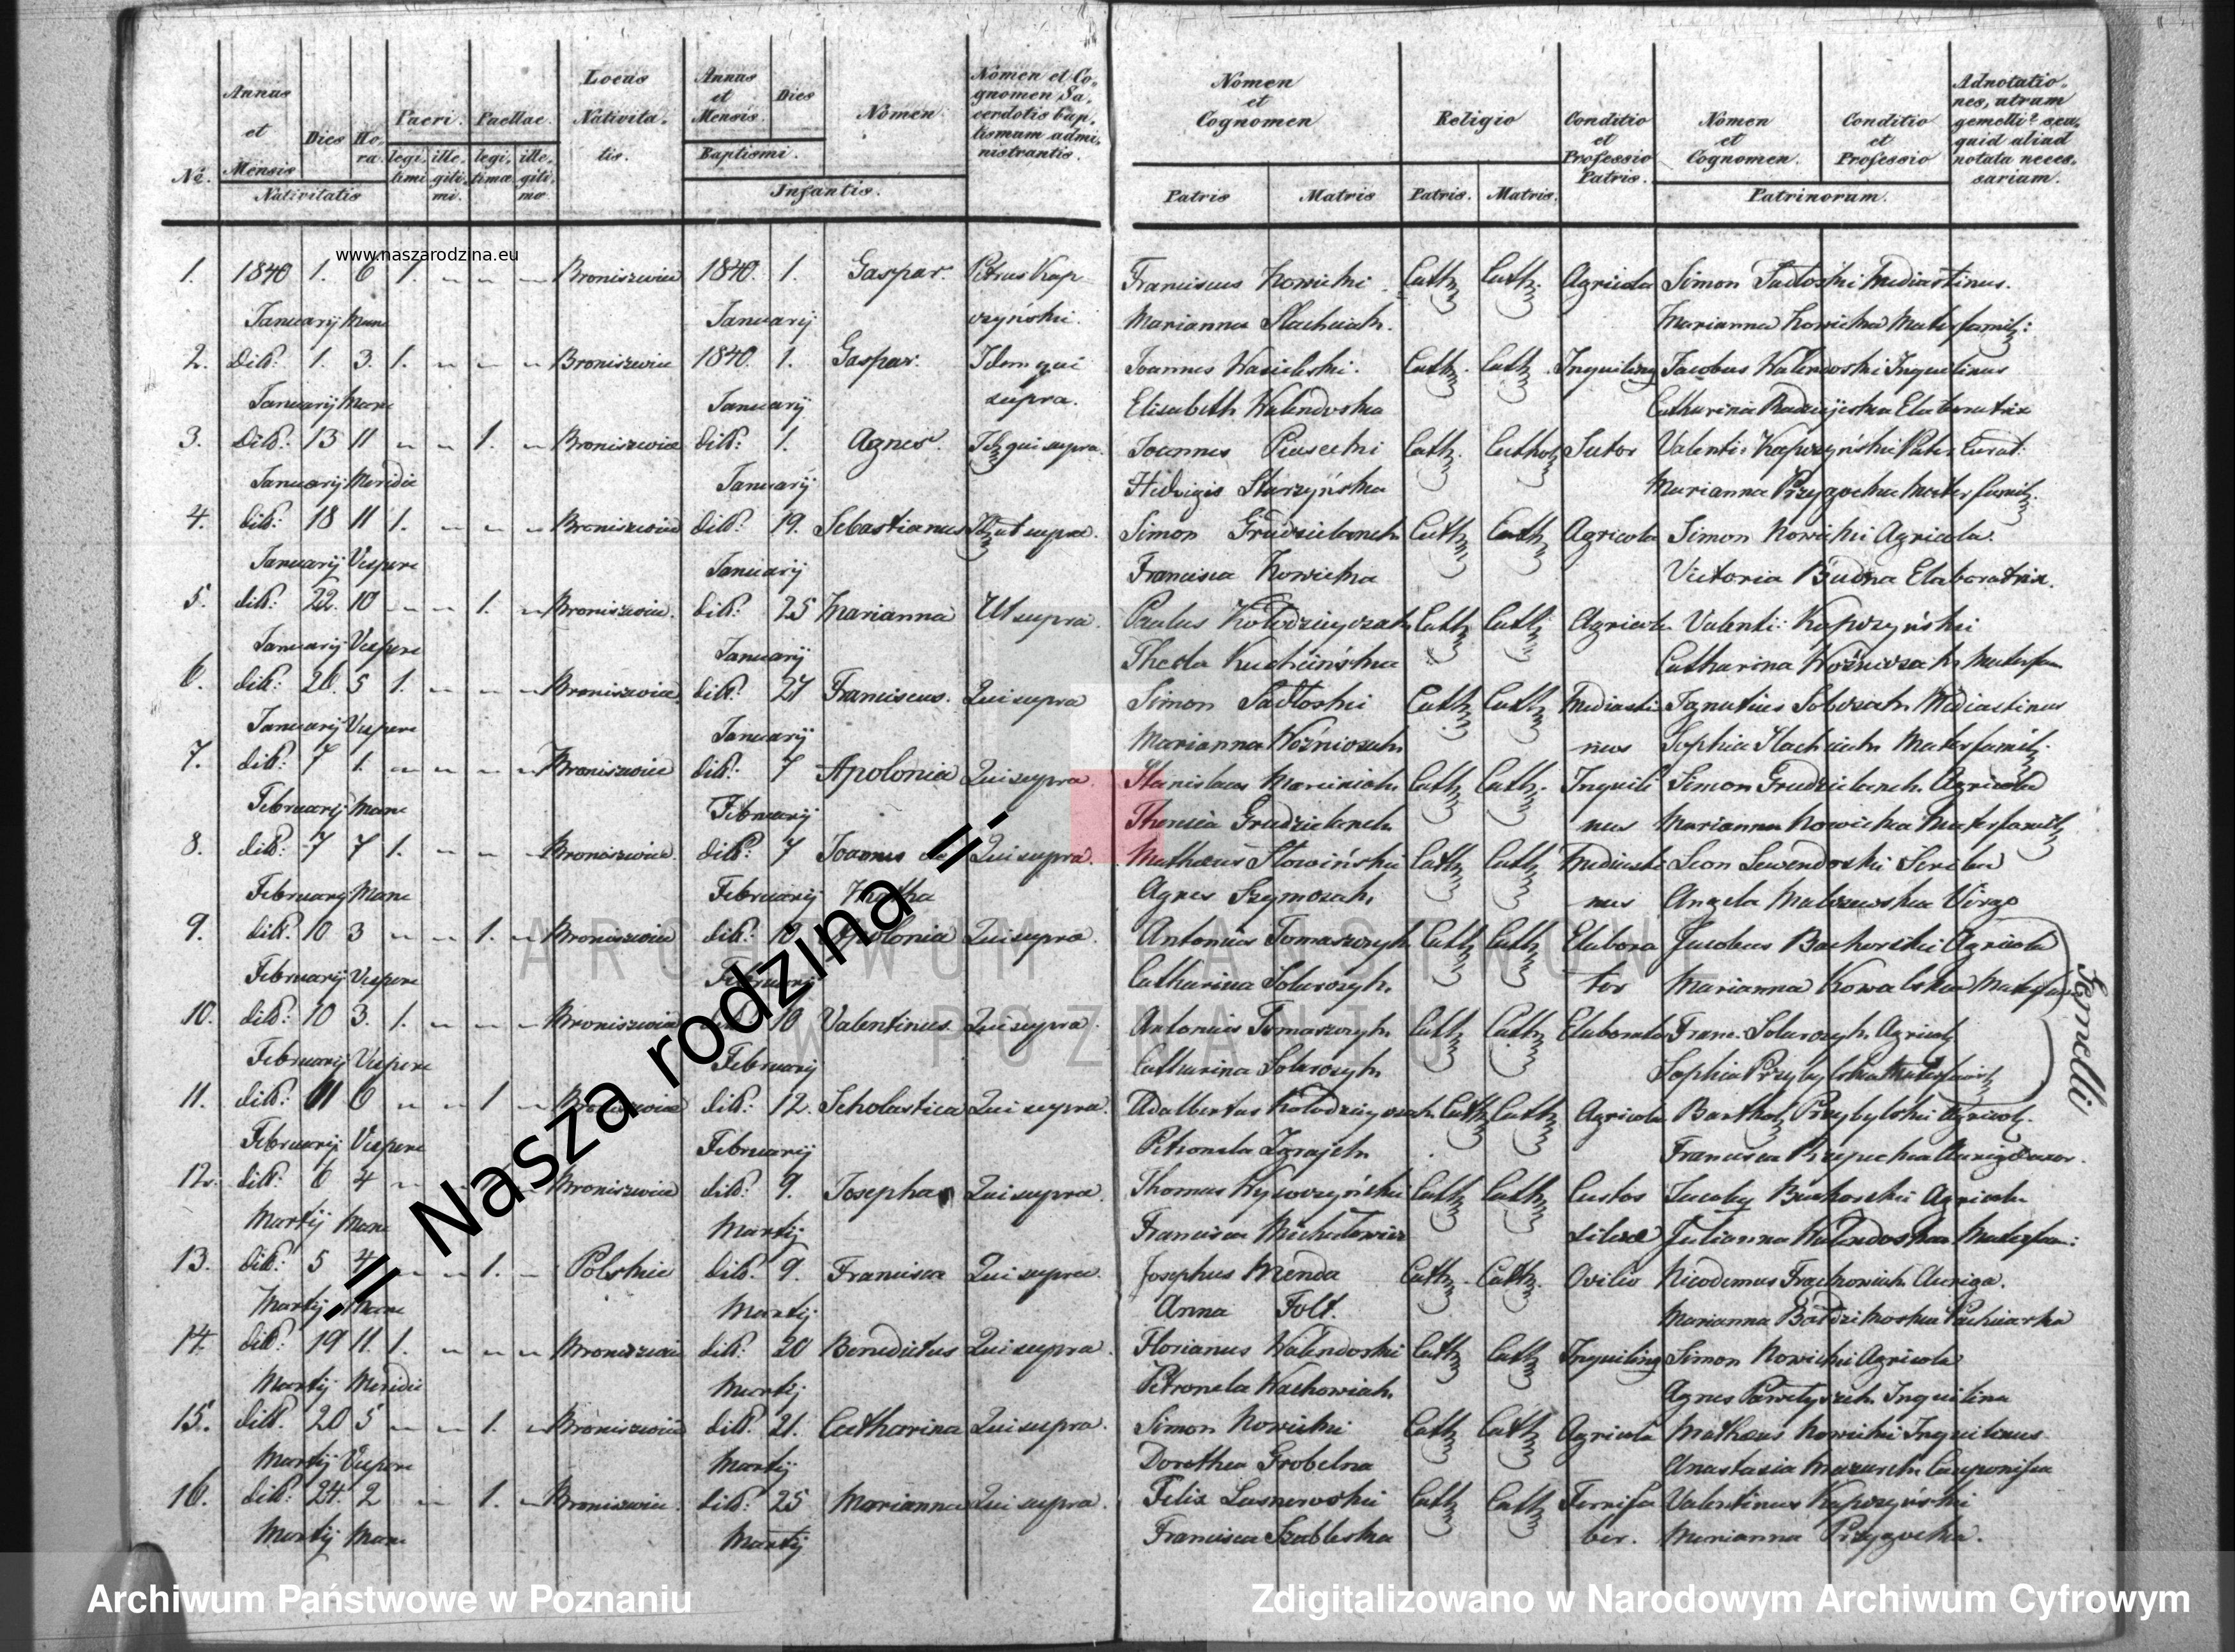 Annus et Mensis Dies Hora Pueri. Puellae. Locus Nativitatis. Annus et Mensis. Dies Nomen Nomen et Cognomen Sacerdotis baptismum administrantis.
№. legitimi illegitimi. legitimae illegitimae Nativitatis Baptismi. Infantis.
Nomen et Cognomen Religio Conditio et Professio Patris. Nomen et Cognomen. Conditio et Professio Adnotationes, utrum gemelli? seu quid aliud notata necessarium.
Patris Matris Patris. Matris. Patrinorum.
www.naszarodzina.eu
1. 1840 1. 6 1. Broniszewice 1840. 1. Gaspar. Petrus Kap Franciscus Nowicki Cath Cath. Agricola Simon Sadloski Mediastinus.
Januarij Mane Januarij czyński. Marianna Stachniak. Marianna Nowicka Materfamil:
2. dito: 1. 3. 1. Broniszewice 1840. 1. Gaspar. Idem qui Joannes Wasieleski. Cath. Cath. Inquilinus Jacobus Walendoski Inquilinus
Januarij Mane Januarij supra. Elisabeth Walendoska Catharina Elaboratrix
3. dito: 13 11 1. Broniszewice dito: 1. Agnes. qui supra. Joannes Piasecki Cath. Cathol Sutor Valenti: Kapczyński Pater Curat:
Januarij Meridie Januarij Hedvigis Starzyńska Marianna Przygocka Mater famil.
4. dito: 18 11 1. Broniszewice dito: 19. Sebastianus ut supra. Simon Grudzielanek Cath Cath Agricola Simon Nowicki Agricola.
Januarij Vespere Januarij Francisca Nowicka Victoria Budna Elaboratrix.
5. dito: 22. 10 1. Broniszewice. dito: 25 Marianna Ut supra. Paulus Kołodziejczak Cath Cath Agricola Valenti: Kapczyński
Januarij Vespere Januarij Thecla Kuchcińska Catharina Woźniczak Materfam
6. dito: 26. 5 1. Broniszewice. dito: 27 Franciscus. Qui supra Simon Sadłoski Cath Cath Mediasti Ignatius Sobczak Mediastinus
Januarij Vespere Januarij Marianna Woźniczak nus Sophia Stachniak Materfamil.
7. dito: 7 1. Broniszewice dito: 7 Apolonia Qui supra. Stanislaus Marciniak Cath Cath. Inquili Simon Grudzielanek Agricola
Februarij Mane Februarij Theresia Grudzielanek nus Marianna Nowicka Materfamil
8. dito: 7 7 1. Broniszewice. dito: 7 Joannes de Qui supra. Mathaeus Słowiński Cath Cath Mediasti Leon Lewendoski Scriba
Februarij Mane Februarij Matha Agnes Szymczak nus Angela Malczewska Virgo
9. dito: 10 3 1. Broniszewice dito: 10 Apolonia Qui supra. Antonius Tomaszczyk Cath Cath Elabora Jacobus Bachorski Agricola
Februarij Vespere Februarij Catharina Solarczyk. tor Marianna Kowalska Materfam
10. dito: 10 3. 1. Broniszewice dito: 10 Valentinus. Qui supra. Antonius Tomaszczyk Cath Cath Elaborator Franc. Solarczyk Agricol
Februarij Vespere Februarij Catharina Solarczyk Sophia Przybylska Materfamil
Gemelli
11. dito: 11 6 1 Broniszewice dito: 12. Scholastica Qui supra. Adalbertus Kołodziejczak Cath Cath Agricola Barthol Przybylski Agricol.
Februarij Vespere Februarij Petronela Zgrajek Francisca Aurigae uxor.
12. dito: 6 4 Broniszewice dito: 9. Josepha Qui supra. Thomas Cath Cath Custos Jacobus Bachorski Agricola
Martij Mane Martij Francisca Michałowicz silvae Julianna Walendoska Materfam:
13. dito: 5 4 1. Polskie dito: 9. Francisca Qui supra. Josephus Menda Cath. Cath. Ovilio Nicodemus Auriga.
Martij Mane Martij Anna Folt. Marianna
14. dito: 19 11. 1. Broniszewice dito: 20 Benedictus Qui supra. Florianus Walendoski Cath Cath Inquilinus Simon Nowicki Agricola
Martij Meridie Martij Petronela Wachowiak. Agnes Inquilina
15. dito. 20 5 1. Broniszewice dito. 21. Catharina Qui supra. Simon Nowicki Cath Cath Agricola Mathaeus Nowicki Inquilinus
Martij Vespere Martij Dorothea Grobelna Anastasia Mazurek
16. dito: 24. 2 1. Broniszewice. dito: 25 Marianna Qui supra. Felix Cath Cath Ferrifa Valentinus Kapczyński
Martij Mane Martij Francisca Szableska ber. Marianna Przygocka.
.:= Nasza rodzina =:.
ARCHIWUM PAŃSTWOWE
W POZNANIU
Archiwum Państwowe w Poznaniu
Zdigitalizowano w Narodowym Archiwum Cyfrowym